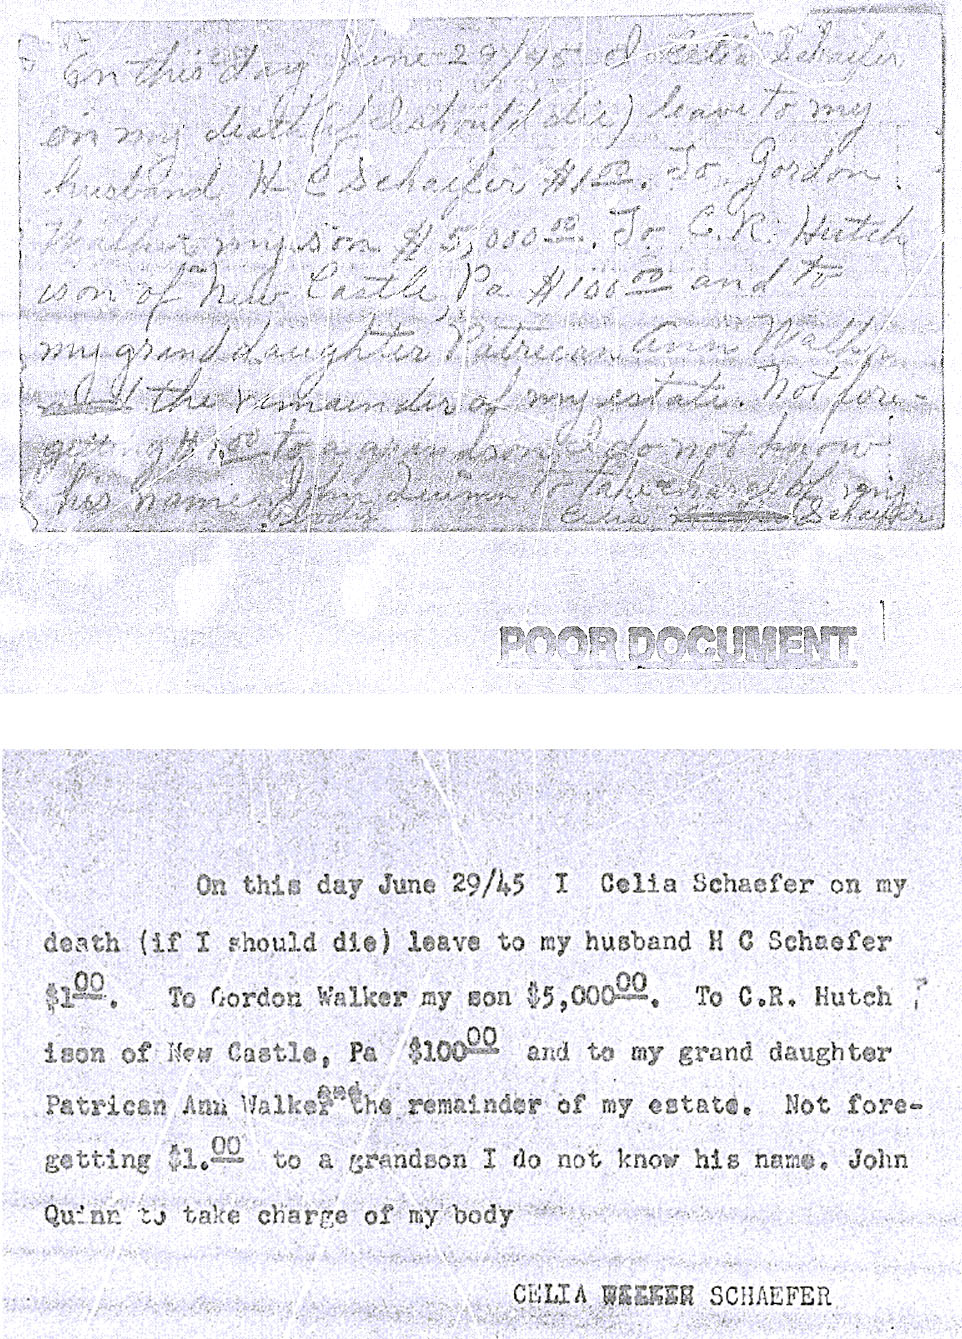 On this day June 29/45 I Celia Schaefer
on my death (if I should die) leave to my
husband H C Schaefer $1.00. To Gordon
Walker my son $5,000 00. To C.R. Hutch
ison of New Castle Pa $100 00 and to
my grand daughter Patrican Ann Walker
the remainder of my estate. Not fore-
getting $1.00 to a grandson I do not know
his name. John Quinn to take charge of my
body
Celia Schaefer
POOR DOCUMENT
On this day June 29/45 I Celia Schaefer on my
death (if I should die) leave to my husband H C Schaefer
$1 00. To Gordon Walker my son $5,000 00. To C.R. Hutch
ison of New Castle, Pa $100 00 and to my grand daughter
Patrican Ann Walker and the remainder of my estate. Not fore-
getting $1. 00 to a grandson I do not know his name. John
Quinn to take charge of my body
CELIA SCHAEFER